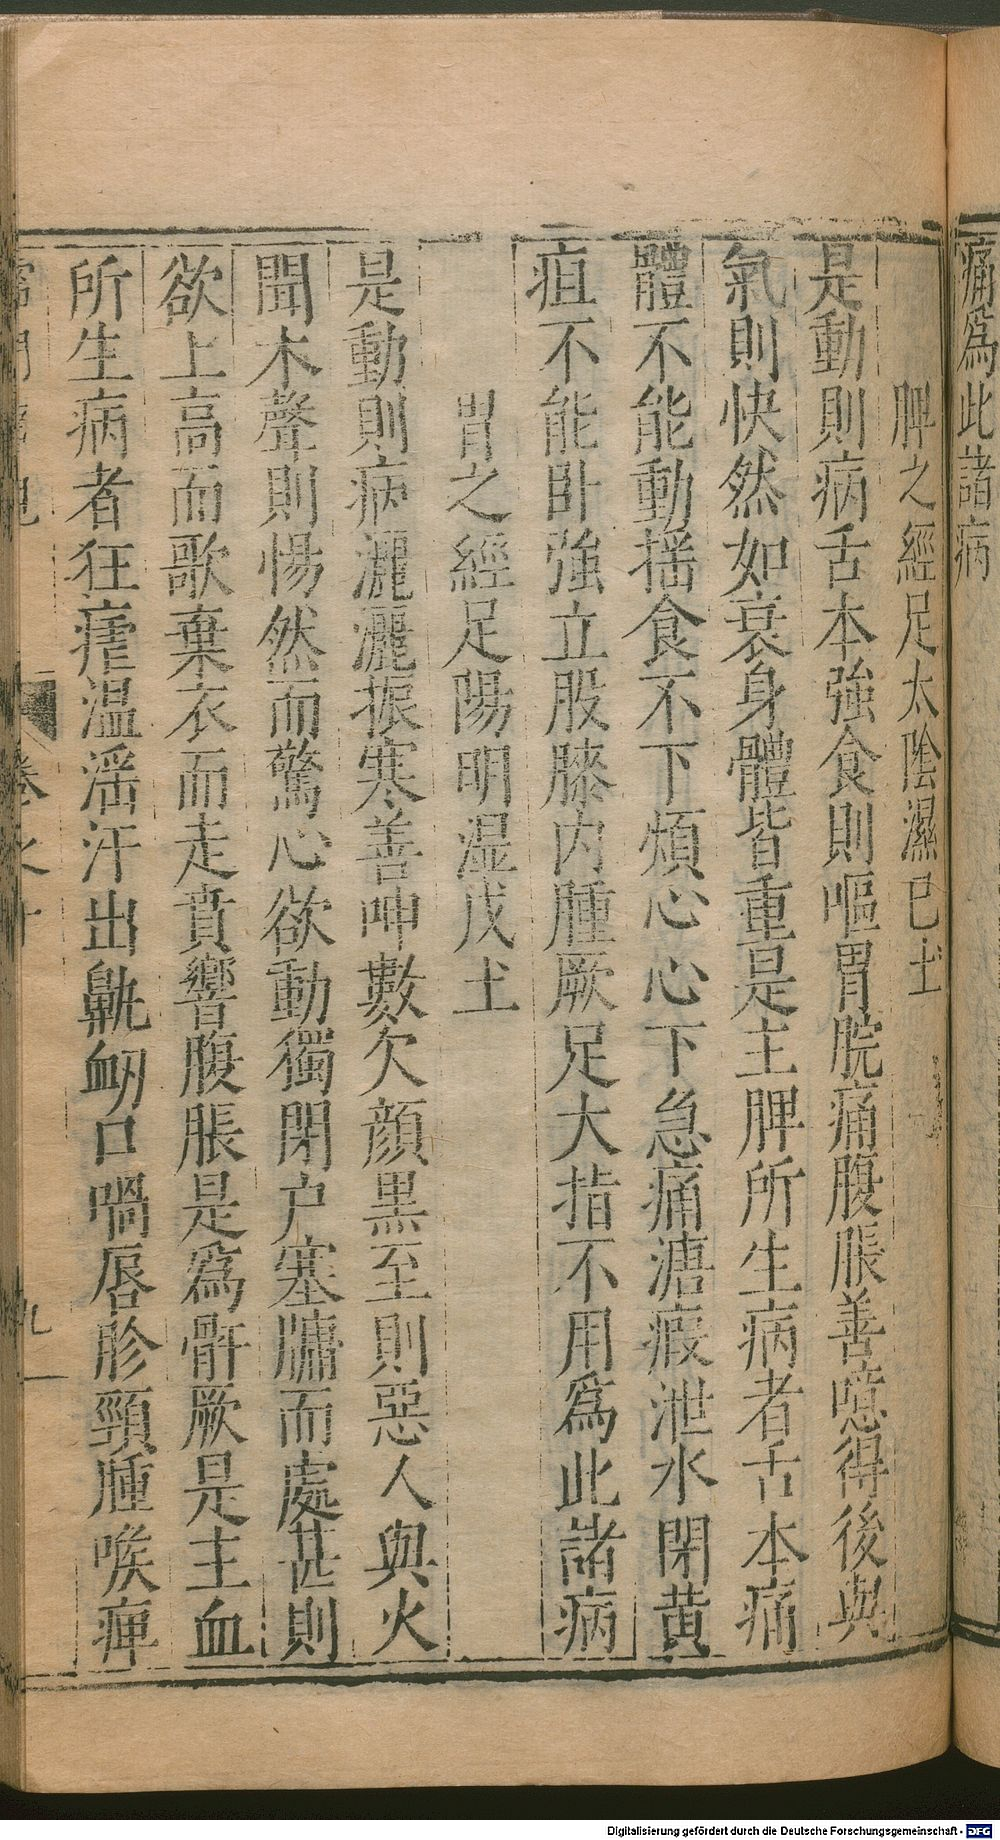 痛爲此諸病
脾之經足太陰濕巳土
是動則病舌本強食則嘔胃脘痛腹脹善噫得後與
氣則快然如衰身體皆重是主脾所生病者舌本痛
體不能動搖食不下煩心心下急痛溏瘕泄水閉黄
疽不能臥強立股膝内腫厥足大指不用爲此諸病
胃之經足陽明湿戊土
是動則病灑灑振寒善呻數欠顔黒至則惡人與火
聞木聲則惕然而驚心欲動獨閉户塞牖而處甚則
欲上高而歌棄衣而走賁響腹脹是爲骭厥是主血
所生病者狂瘧温滛汗出鼽衂口喎唇胗頸腫喉痺
卷之十
九
Digitalisierung gefördert durch die Deutsche Forschungsgemeinschaft - DFG